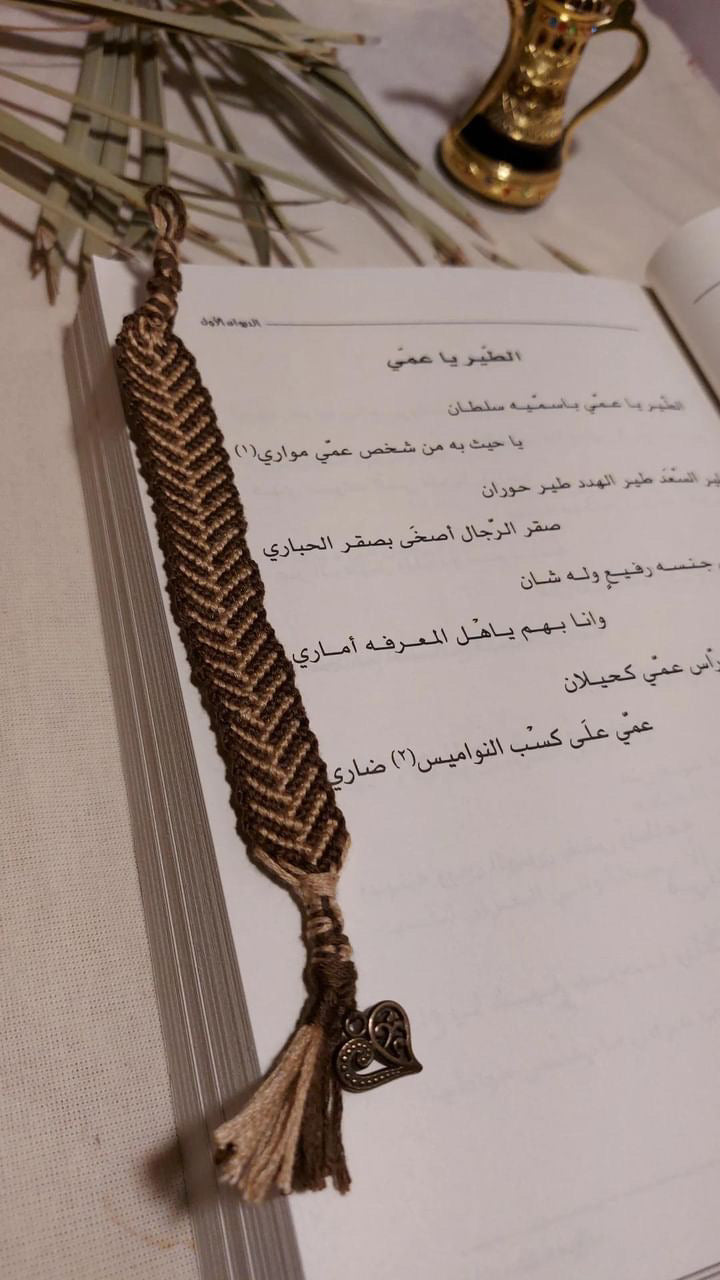 الديوان الأول
الطّير يا عمّي
الطّير يا عمّي باسمّيه سلطان
يا حيث به من شخص عمّي مواري(١)
طير السّعَد طير الهدد طير حوران
صقر الرّجال أصخَى بصقر الحباري
جنسه رفيعٍ وله شان
وانا بهم ياهْل المعرفه أماري
راس عمّي كحيلان
عمّي علَى كسْب النواميس(٢) ضاري